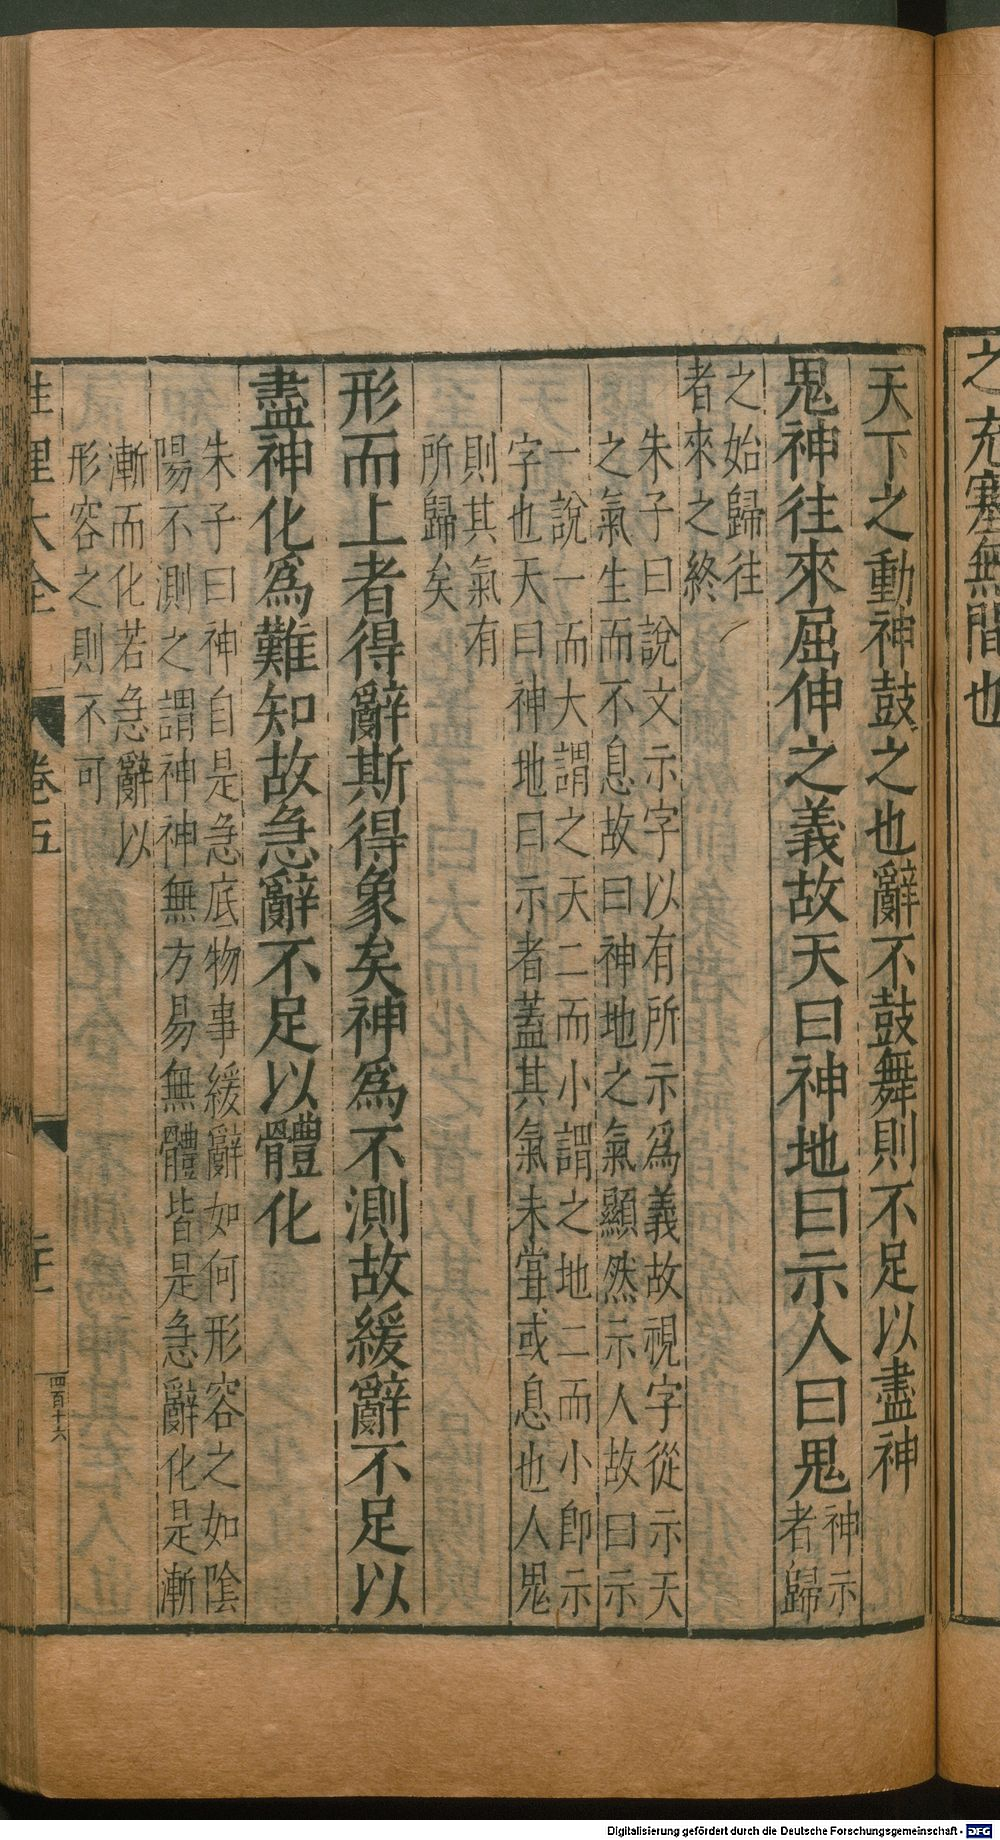 之充塞無間也
天下之動神鼓之也辭不鼓舞則不足以盡神
鬼神往來屈伸之義故天曰神地曰示人曰鬼
神示
者歸
之始歸往
者來之終
朱子曰說文示字以有所示爲義故視字從示天
之氣生而不息故曰神地之氣顯然示人故曰示
一說一而大謂之天二而小謂之地二而小卽示
字也天曰神地曰示者蓋其氣未甞或息也人鬼
則其氣有
所歸矣
形而上者得辭斯得象矣神爲不測故緩辭不足以
盡神化爲難知故急辭不足以體化
朱子曰神自是急底物事緩辭如何形容之如隂
陽不測之謂神神無方易無體皆是急辭化是漸
漸而化若急辭以
形容之則不可
性理大全
卷五
四百十六
Digitalisierung gefördert durch die Deutsche Forschungsgemeinschaft - DFG